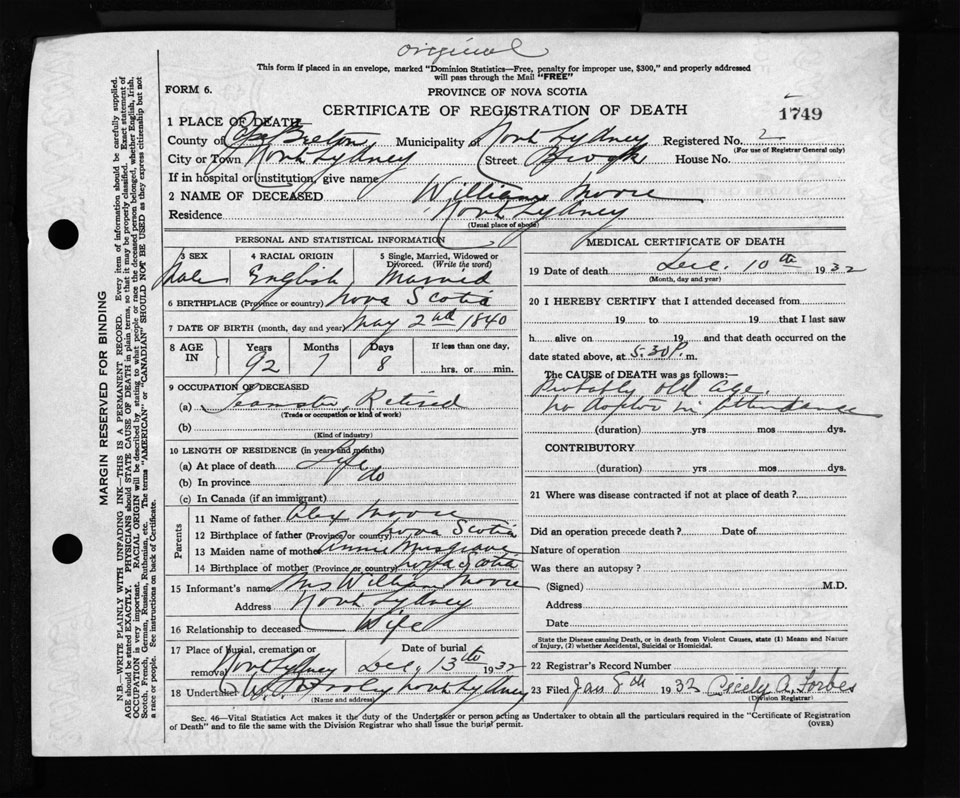 original
This form if placed in an envelope, marked "Dominion Statistics—Free, penalty for improper use, $300," and properly addressed
will pass through the Mail "FREE"
FORM 6.
PROVINCE OF NOVA SCOTIA
CERTIFICATE OF REGISTRATION OF DEATH
1749
1 PLACE OF DEATH—
County of Cape Breton Municipality of North Sydney Registered No. 2
(For use of Registrar General only)
City or Town North Sydney Street Brook House No.
If in hospital or institution, give name
2 NAME OF DECEASED William Moore
Residence North Sydney
(Usual place of abode)
PERSONAL AND STATISTICAL INFORMATION
3 SEX 4 RACIAL ORIGIN 5 Single, Married, Widowed or Divorced. (Write the word)
Male English Married
6 BIRTHPLACE (Province or country) Nova Scotia
7 DATE OF BIRTH (month, day and year) May 2nd 1840
8 AGE IN Years Months Days If less than one day,
92 7 8 hrs. or min.
9 OCCUPATION OF DECEASED
(a) Teamster, Retired
(Trade or occupation or kind of work)
(b)
(Kind of industry)
10 LENGTH OF RESIDENCE (in years and months)
(a) At place of death Life
(b) In province do
(c) In Canada (if an immigrant)
Parents
11 Name of father Alex Moore
12 Birthplace of father (Province or country) Nova Scotia
13 Maiden name of mother Annie Musgrave
14 Birthplace of mother (Province or country) Nova Scotia
15 Informant's name Mrs William Moore
Address North Sydney
16 Relationship to deceased Wife
17 Place of burial, cremation or removal North Sydney Date of burial Dec. 13th 1932
18 Undertaker North Sydney
(Name and address)
MEDICAL CERTIFICATE OF DEATH
19 Date of death Dec. 10th 1932
(Month, day and year)
20 I HEREBY CERTIFY that I attended deceased from
19 to 19 that I last saw
h alive on 19 and that death occurred on the
date stated above, at 5.30 P. m.
The CAUSE of DEATH was as follows:—
Probably old age,
no doctor in attendance
(duration) yrs mos dys.
CONTRIBUTORY
(duration) yrs mos dys.
21 Where was disease contracted if not at place of death?
Did an operation precede death? Date of
Nature of operation
Was there an autopsy?
(Signed) M.D.
Address
Date
State the Disease causing Death, or in death from Violent Causes, state (1) Means and Nature
of Injury, (2) whether Accidental, Suicidal or Homicidal.
22 Registrar's Record Number
23 Filed Jan 8th 1933 Cicely A. Forbes
(Division Registrar)
Sec. 46—Vital Statistics Act makes it the duty of the Undertaker or person acting as Undertaker to obtain all the particulars required in the "Certificate of Registration
of Death" and to file the same with the Division Registrar who shall issue the burial permit.
(OVER)
MARGIN RESERVED FOR BINDING
N.B.—WRITE PLAINLY WITH UNFADING INK—THIS IS A PERMANENT RECORD. Every item of information should be carefully supplied.
AGE should be stated EXACTLY. PHYSICIANS should STATE CAUSE OF DEATH in plain terms, so that it may be properly classified. Exact statement of
OCCUPATION is very important. RACIAL ORIGIN will be described by stating to what people or race the deceased person belonged, whether English, Irish,
Scotch, French, German, Russian, Ruthenian, etc. The terms "AMERICAN" or "CANADIAN" SHOULD NOT BE USED as they express citizenship but not
a race or people. See instructions on back of Certificate.